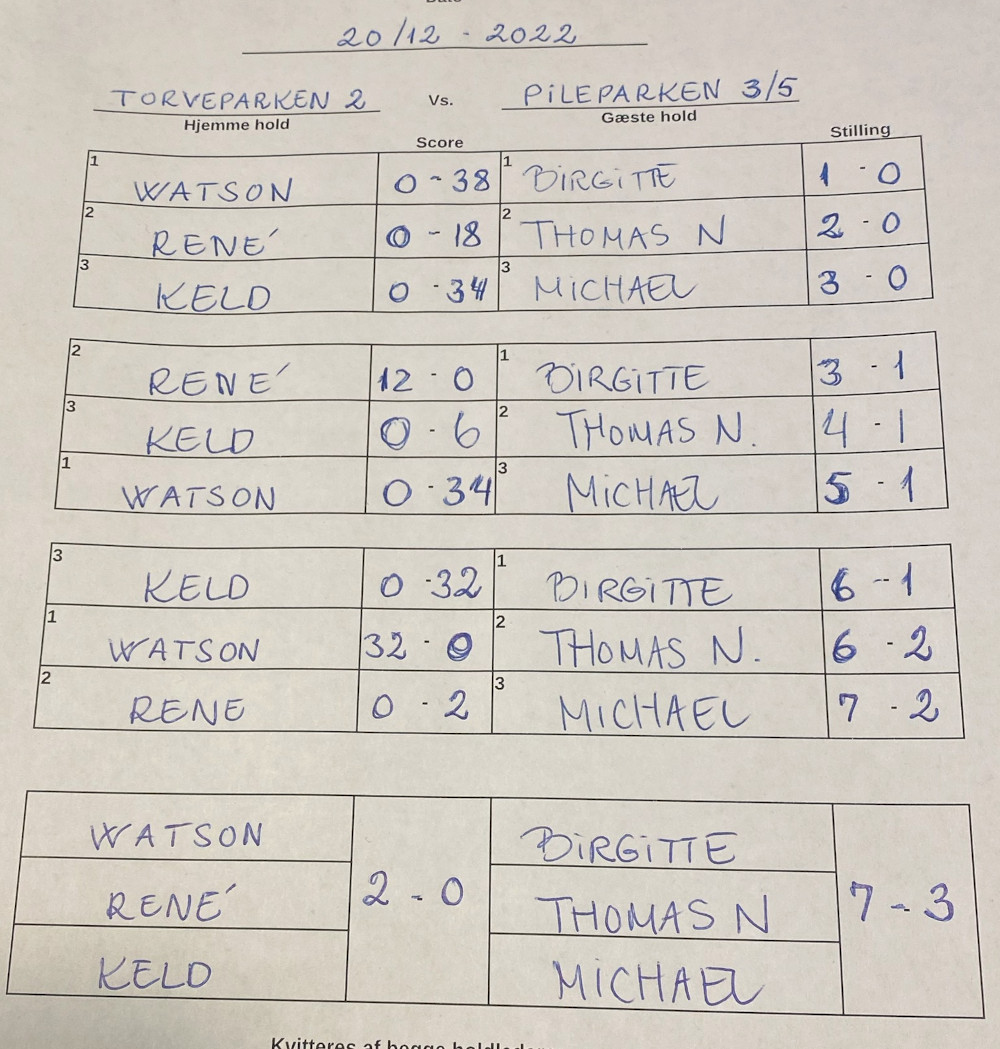 20/12 - 2022
TORVEPARKEN 2 Vs. PILEPARKEN 3/5
Hjemme hold Gæste hold
Score Stilling
1 WATSON 0 - 38 1 BIRGITTE 1 - 0
2 RENÉ 0 - 18 2 THOMAS N 2 - 0
3 KELD 0 - 34 3 MICHAEL 3 - 0
2 RENÉ 12 - 0 1 BIRGITTE 3 - 1
3 KELD 0 - 6 2 THOMAS N. 4 - 1
1 WATSON 0 - 34 3 MICHAEL 5 - 1
3 KELD 0 - 32 1 BIRGITTE 6 - 1
1 WATSON 32 - 0 2 THOMAS N. 6 - 2
2 RENE 0 - 2 3 MICHAEL 7 - 2
WATSON BIRGITTE
RENÉ 2 - 0 THOMAS N 7 - 3
KELD MICHAEL
Kvitteres af begge